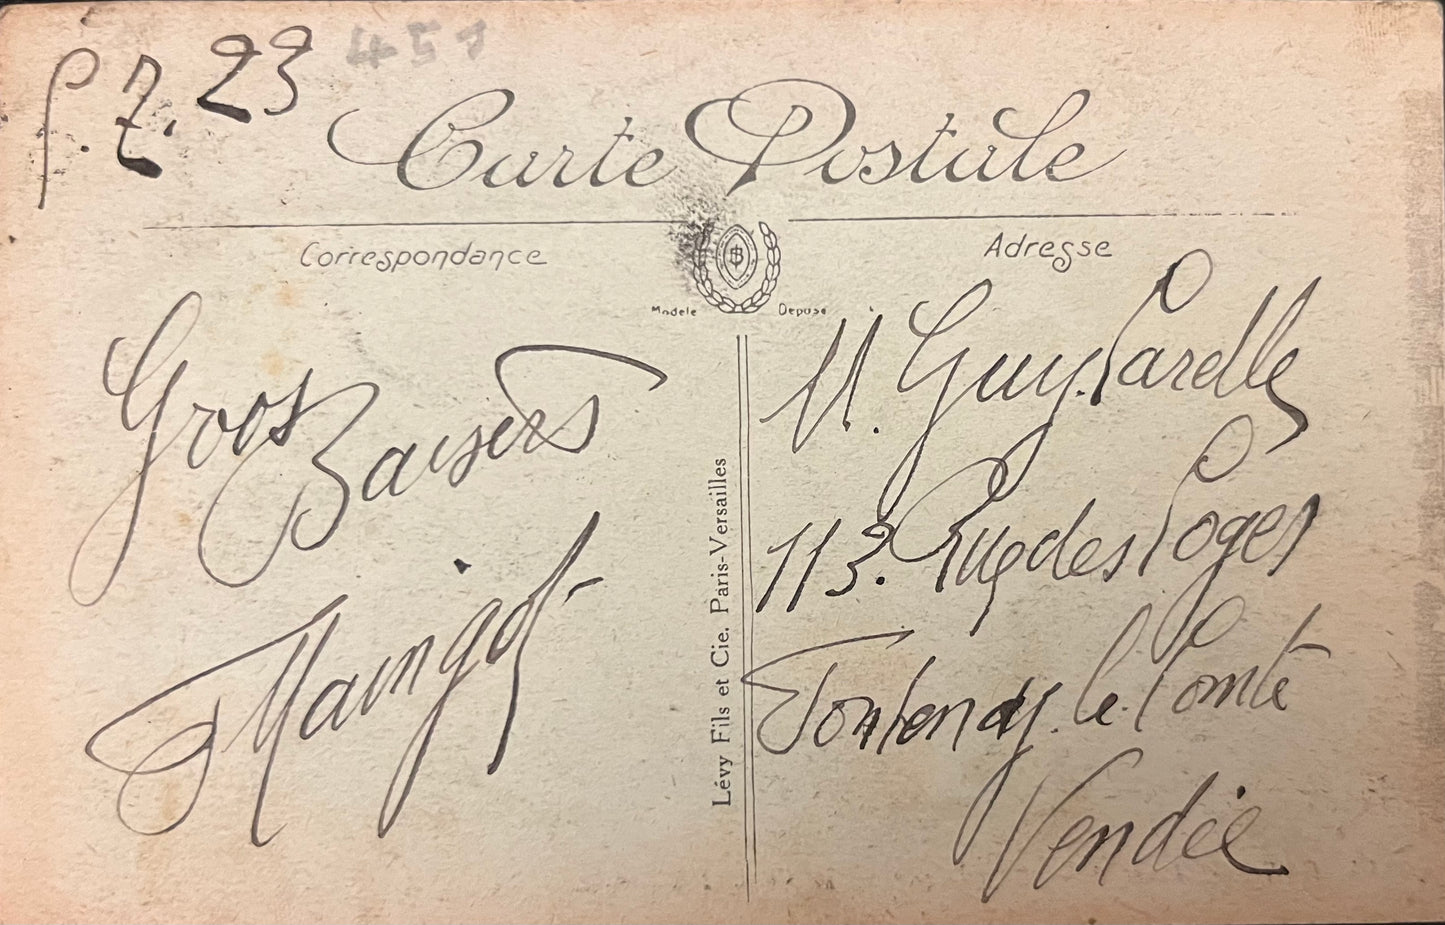 P. Z. 23 451
Carte Postale
Correspondance
Adresse
Modele Deposé
Gros
Baisers
Maingot
Lévy Fils et Cie. Paris-Versailles
M. Guy Parelle
113. Rue des Loges
Fontenay. le. Comte
Vendée